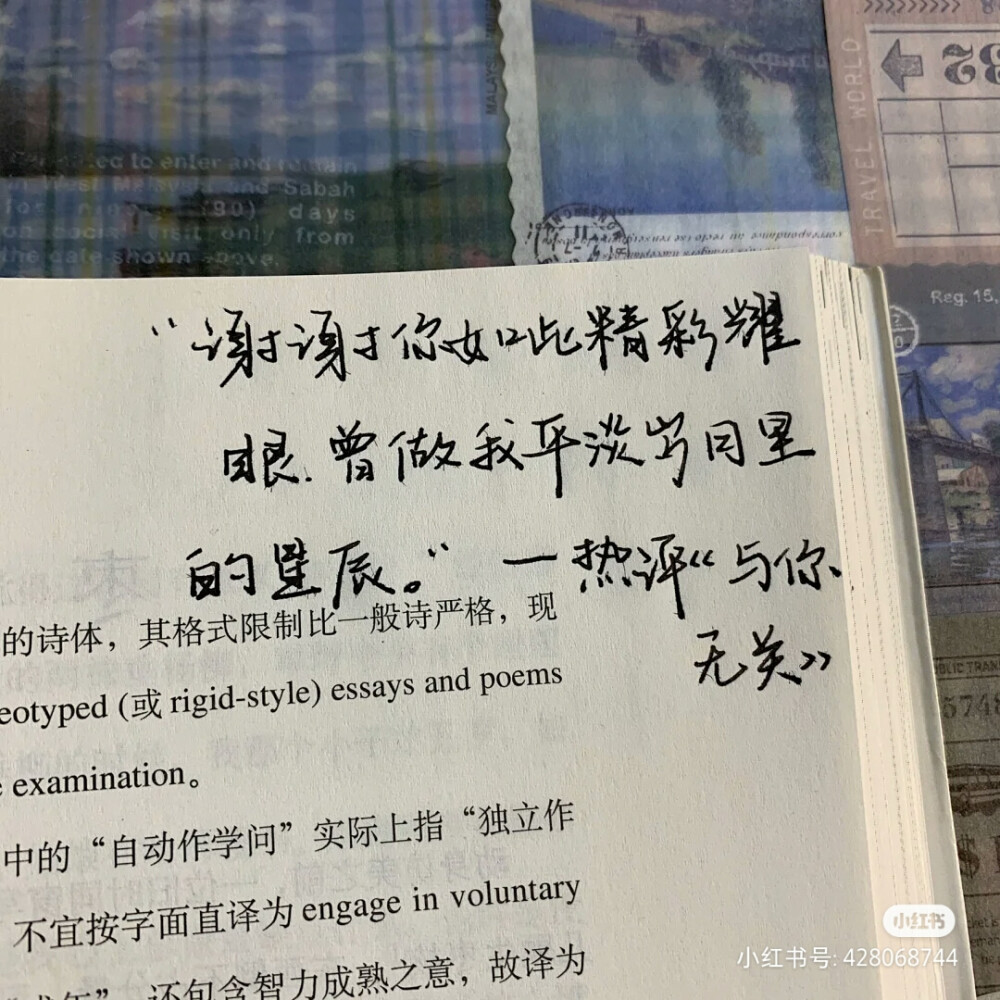 MALAYSIA
ed to enter and remain
in West Malaysia and Sabah
(90) days
on social visit only from
the date shown above.
TRAVEL WORLD
32
Reg. 15,
“谢谢你如此精彩耀
眼.曾做我平淡岁月里
的星辰。”一热评《与你
无关》
的诗体，其格式限制比一般诗严格，现
eotyped (或 rigid-style) essays and poems
examination。
中的“自动作学问”实际上指“独立作
不宜按字面直译为 engage in voluntary
“成年”，还包含智力成熟之意，故译为
BLIC TRAN
5748
$
小红书
小红书号: 428068744